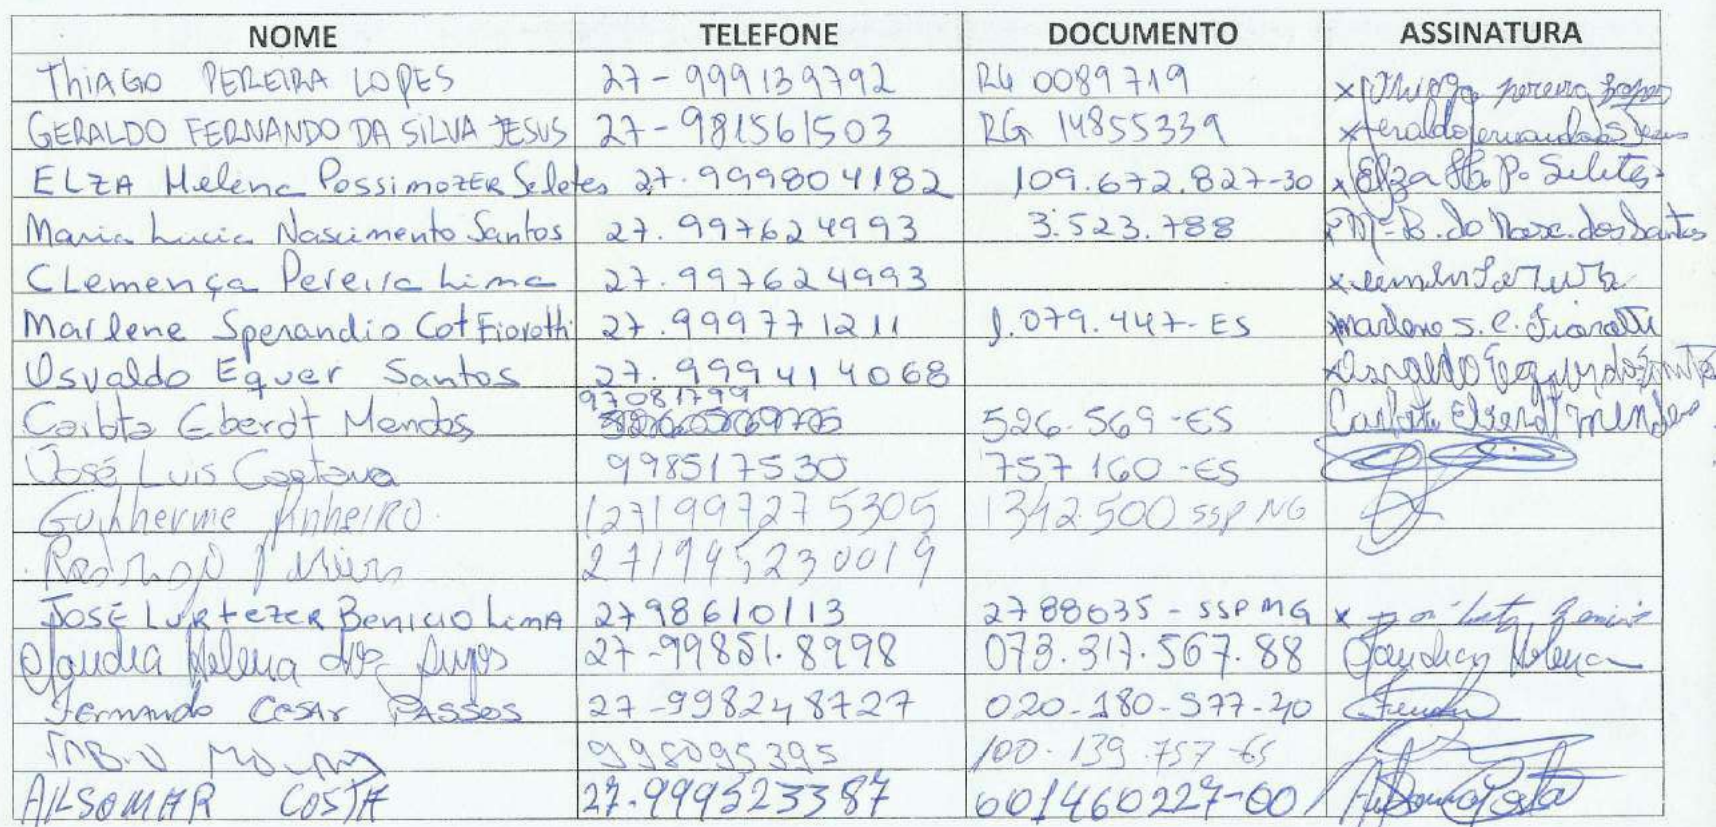 NOME TELEFONE DOCUMENTO ASSINATURA
THIAGO PEREIRA LOPES 27-999139792 RG 0089719 x Thiago pereira Lopes
GERALDO FERNANDO DA SILVA JESUS 27-981561503 RG 14855339 x Geraldo Fernando S Jesus
ELZA Helena Possimozer Seletes 27.999804182 109.672.827-30 x Elza H. P. Seletes
Maria Lucia Nascimento Santos 27.997624993 3.523.788 do Nasc. dos Santos
Clemença Pereira Lima 27.997624993 x
Marlene Sperandio Cot Fiorotti 27.999771211 1.079.447-ES x marlene S. C. Fiorotti
Osvaldo Equer Santos 27.999414068 x Osvaldo
97081799
Carlota Eberdt Mendes 526.569-ES Carlota Eberdt Mendes
José Luis Caetano 998517530 757160-ES
Guilherme Pinheiro. (27)997275305 1342.500 SSP MG
Rodrigo 27)995230019
JOSÉ LURTEZER BENICIO LIMA 2798610113 2788035-SSP MG x
Claudia Helena dos Anjos 27-99851.8998 073.317.567.88 Claudia Helena
Fernando CESAR PASSOS 27-998248727 020-180-577-40
998095395 100.139.757-65
AILSOMAR COSTA 27.999523387 601460227-00